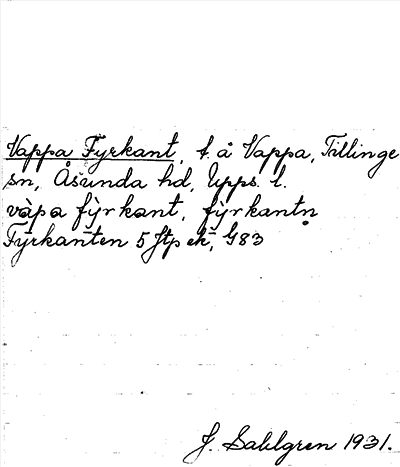 Vappa Fyrkant, t. å Vappa, Tillinge
sn, Åsunda hd, Upps. l.
vàpa fỳrkant, fỳrkantn̥
Fyrkanten 5 Jfp ek, G83
J. Sahlgren 1931.